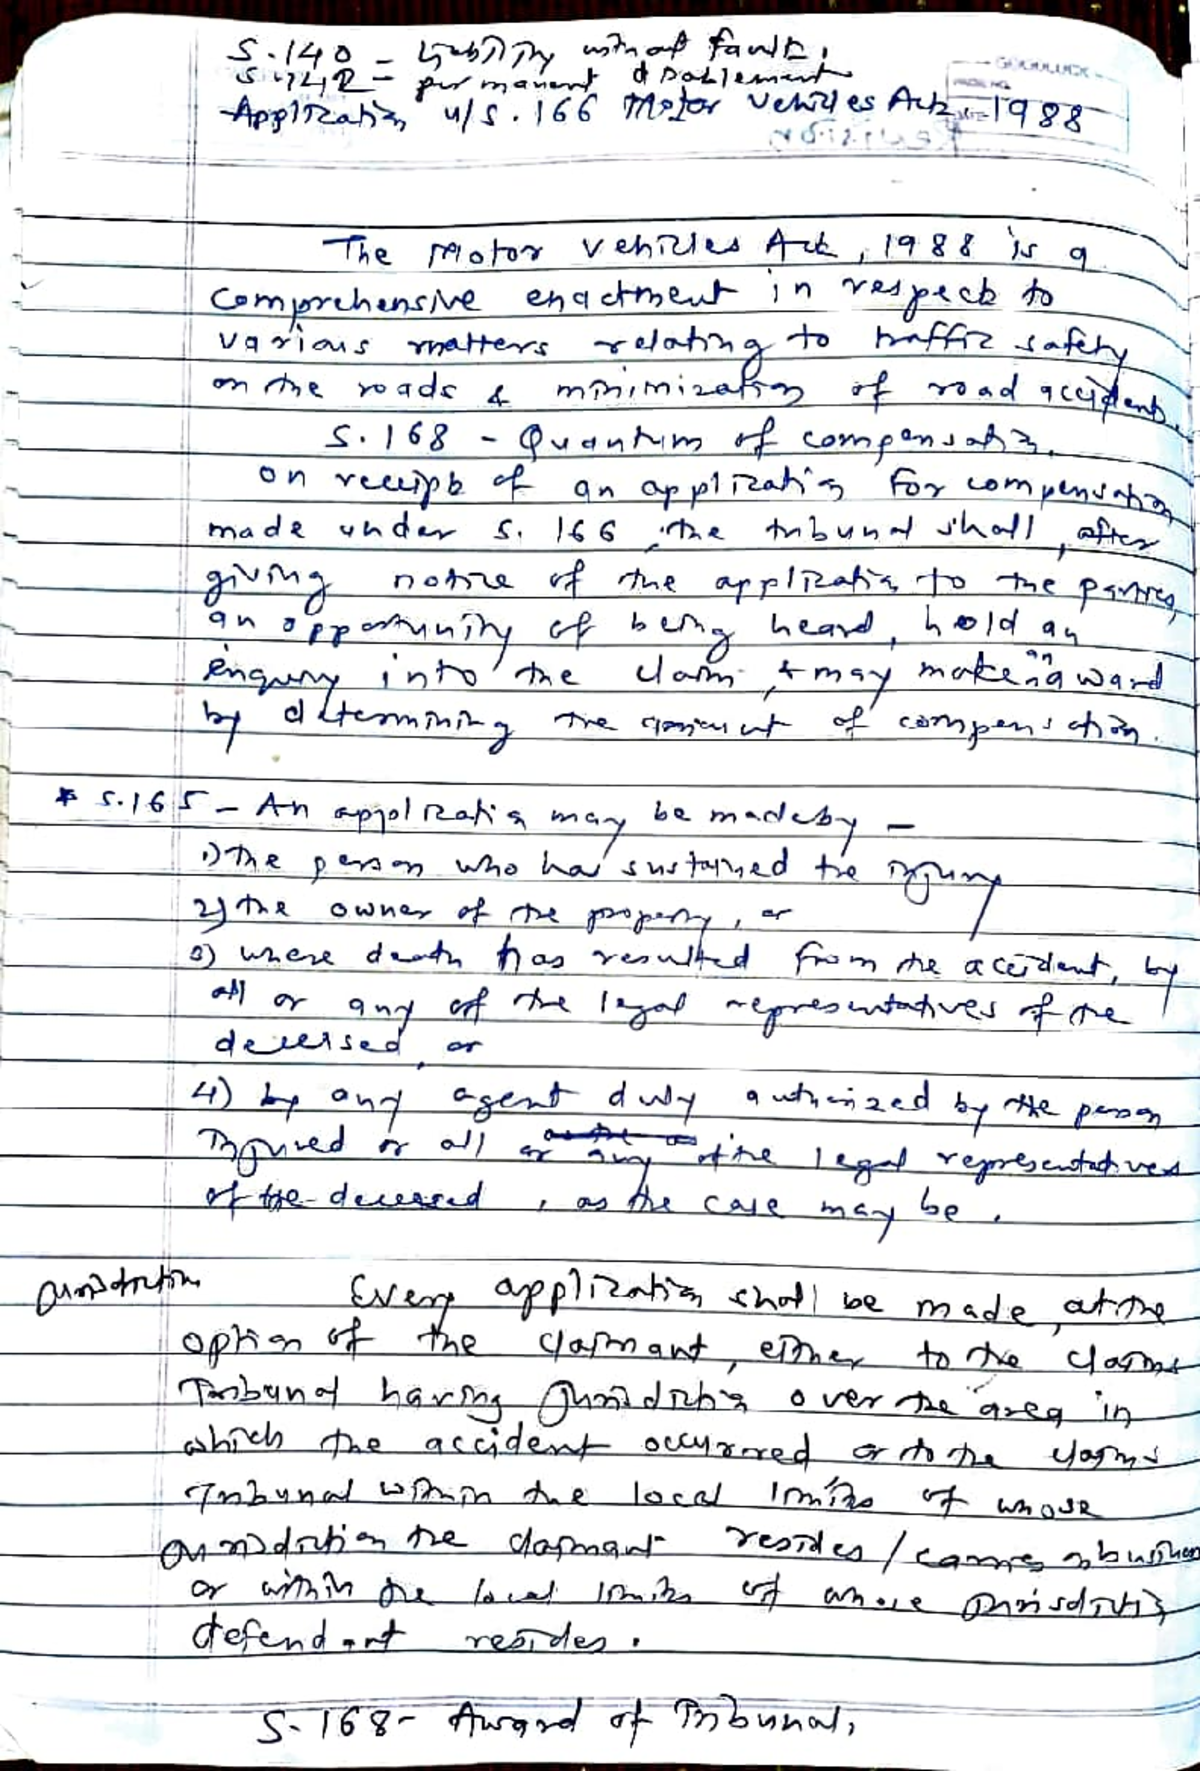 S.140 - Liability without fault.
S.142 - permanent disablement
Application u/s. 166 Motor Vehicles Act - 1988
The Motor Vehicles Act, 1988 is a
comprehensive enactment in respect to
various matters relating to traffic safety
on the roads & minimization of road accident.
S.168 - Quantum of compensation.
on receipt of an application for compensation
made under S. 166, the tribunal shall, after
giving notice of the application to the parties,
an opportunity of being heard, hold an
enquiry into the claim & may make an award
by determining the amount of compensation.
* S.165 - An application may be made by -
1) the person who has sustained the injury
2) the owner of the property, or
3) where death has resulted from the accident, by
all or any of the legal representatives of the
deceased, or
4) by any agent duly authorized by the person
injured or all or any of the legal representatives
of the deceased, as the case may be.
Jurisdiction Every application shall be made, at the
option of the claimant, either to the claims
Tribunal having jurisdiction over the area in
which the accident occurred or to the claims
Tribunal within the local limits of whose
jurisdiction the claimant resides / carries on business
or within the local limits of whose jurisdiction
defendant resides.
S-168- Award of Tribunal.